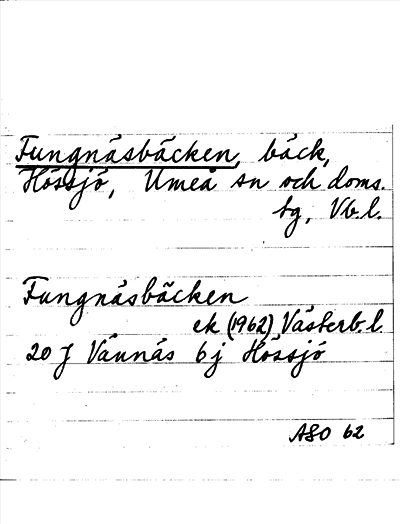 Fungnäsbäcken, bäck,
Hössjö, Umeå sn och doms.
tg, Vb.l.
Fungnäsbäcken
ek (1962) Västerb.l.
20 J Vännäs 6j Hössjö
ASO 62